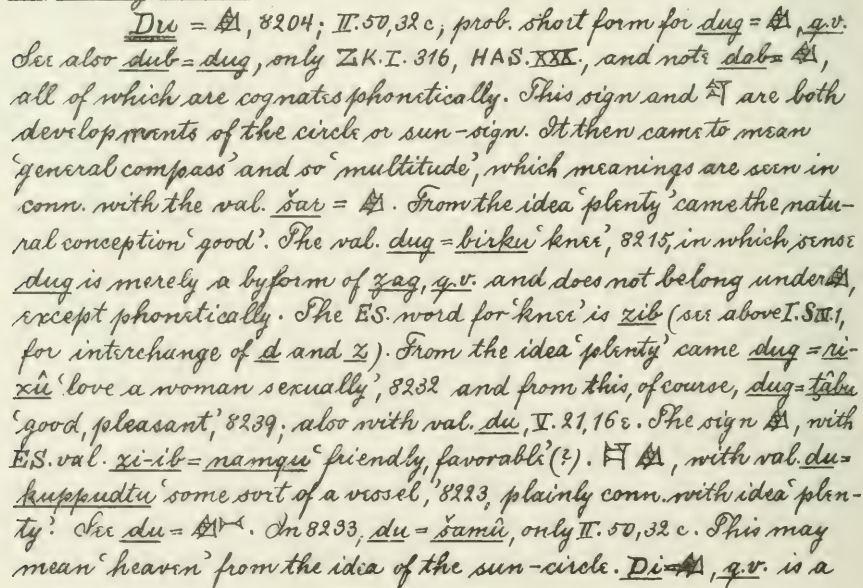 Du = 𒄭, 8204; II. 50, 32 c; prob. short form for dug = 𒄭, q.v.
See also dub = dug, only ZK. I. 316, HAS. XXX., and note dab = 𒄭,
all of which are cognates phonetically. This sign and are both
developments of the circle or sun-sign. It then came to mean
'general compass' and so 'multitude', which meanings are seen in
conn. with the val. šar = 𒄭. From the idea 'plenty' came the natu-
ral conception 'good'. The val. dug = birku 'knee', 8215, in which sense
dug is merely a byform of zag, q.v. and does not belong under 𒄭,
except phonetically. The ES. word for 'knee' is zib (see above I. § IV. 1,
for interchange of d and z). From the idea 'plenty' came dug = ri-
xû 'love a woman sexually', 8232 and from this, of course, dug = ṭâbu
'good, pleasant,' 8239; also with val. du, V. 21, 16 e. The sign 𒄭, with
ES. val. zi-ib = namqu 'friendly, favorable' (?). 𒄭, with val. du =
kuppudtu 'some sort of a vessel,' 8223, plainly conn. with idea 'plen-
ty.' See du = 𒄭. In 8233, du = šamû, only II. 50, 32 c. This may
mean 'heaven' from the idea of the sun-circle. Di = 𒄭, q.v. is a